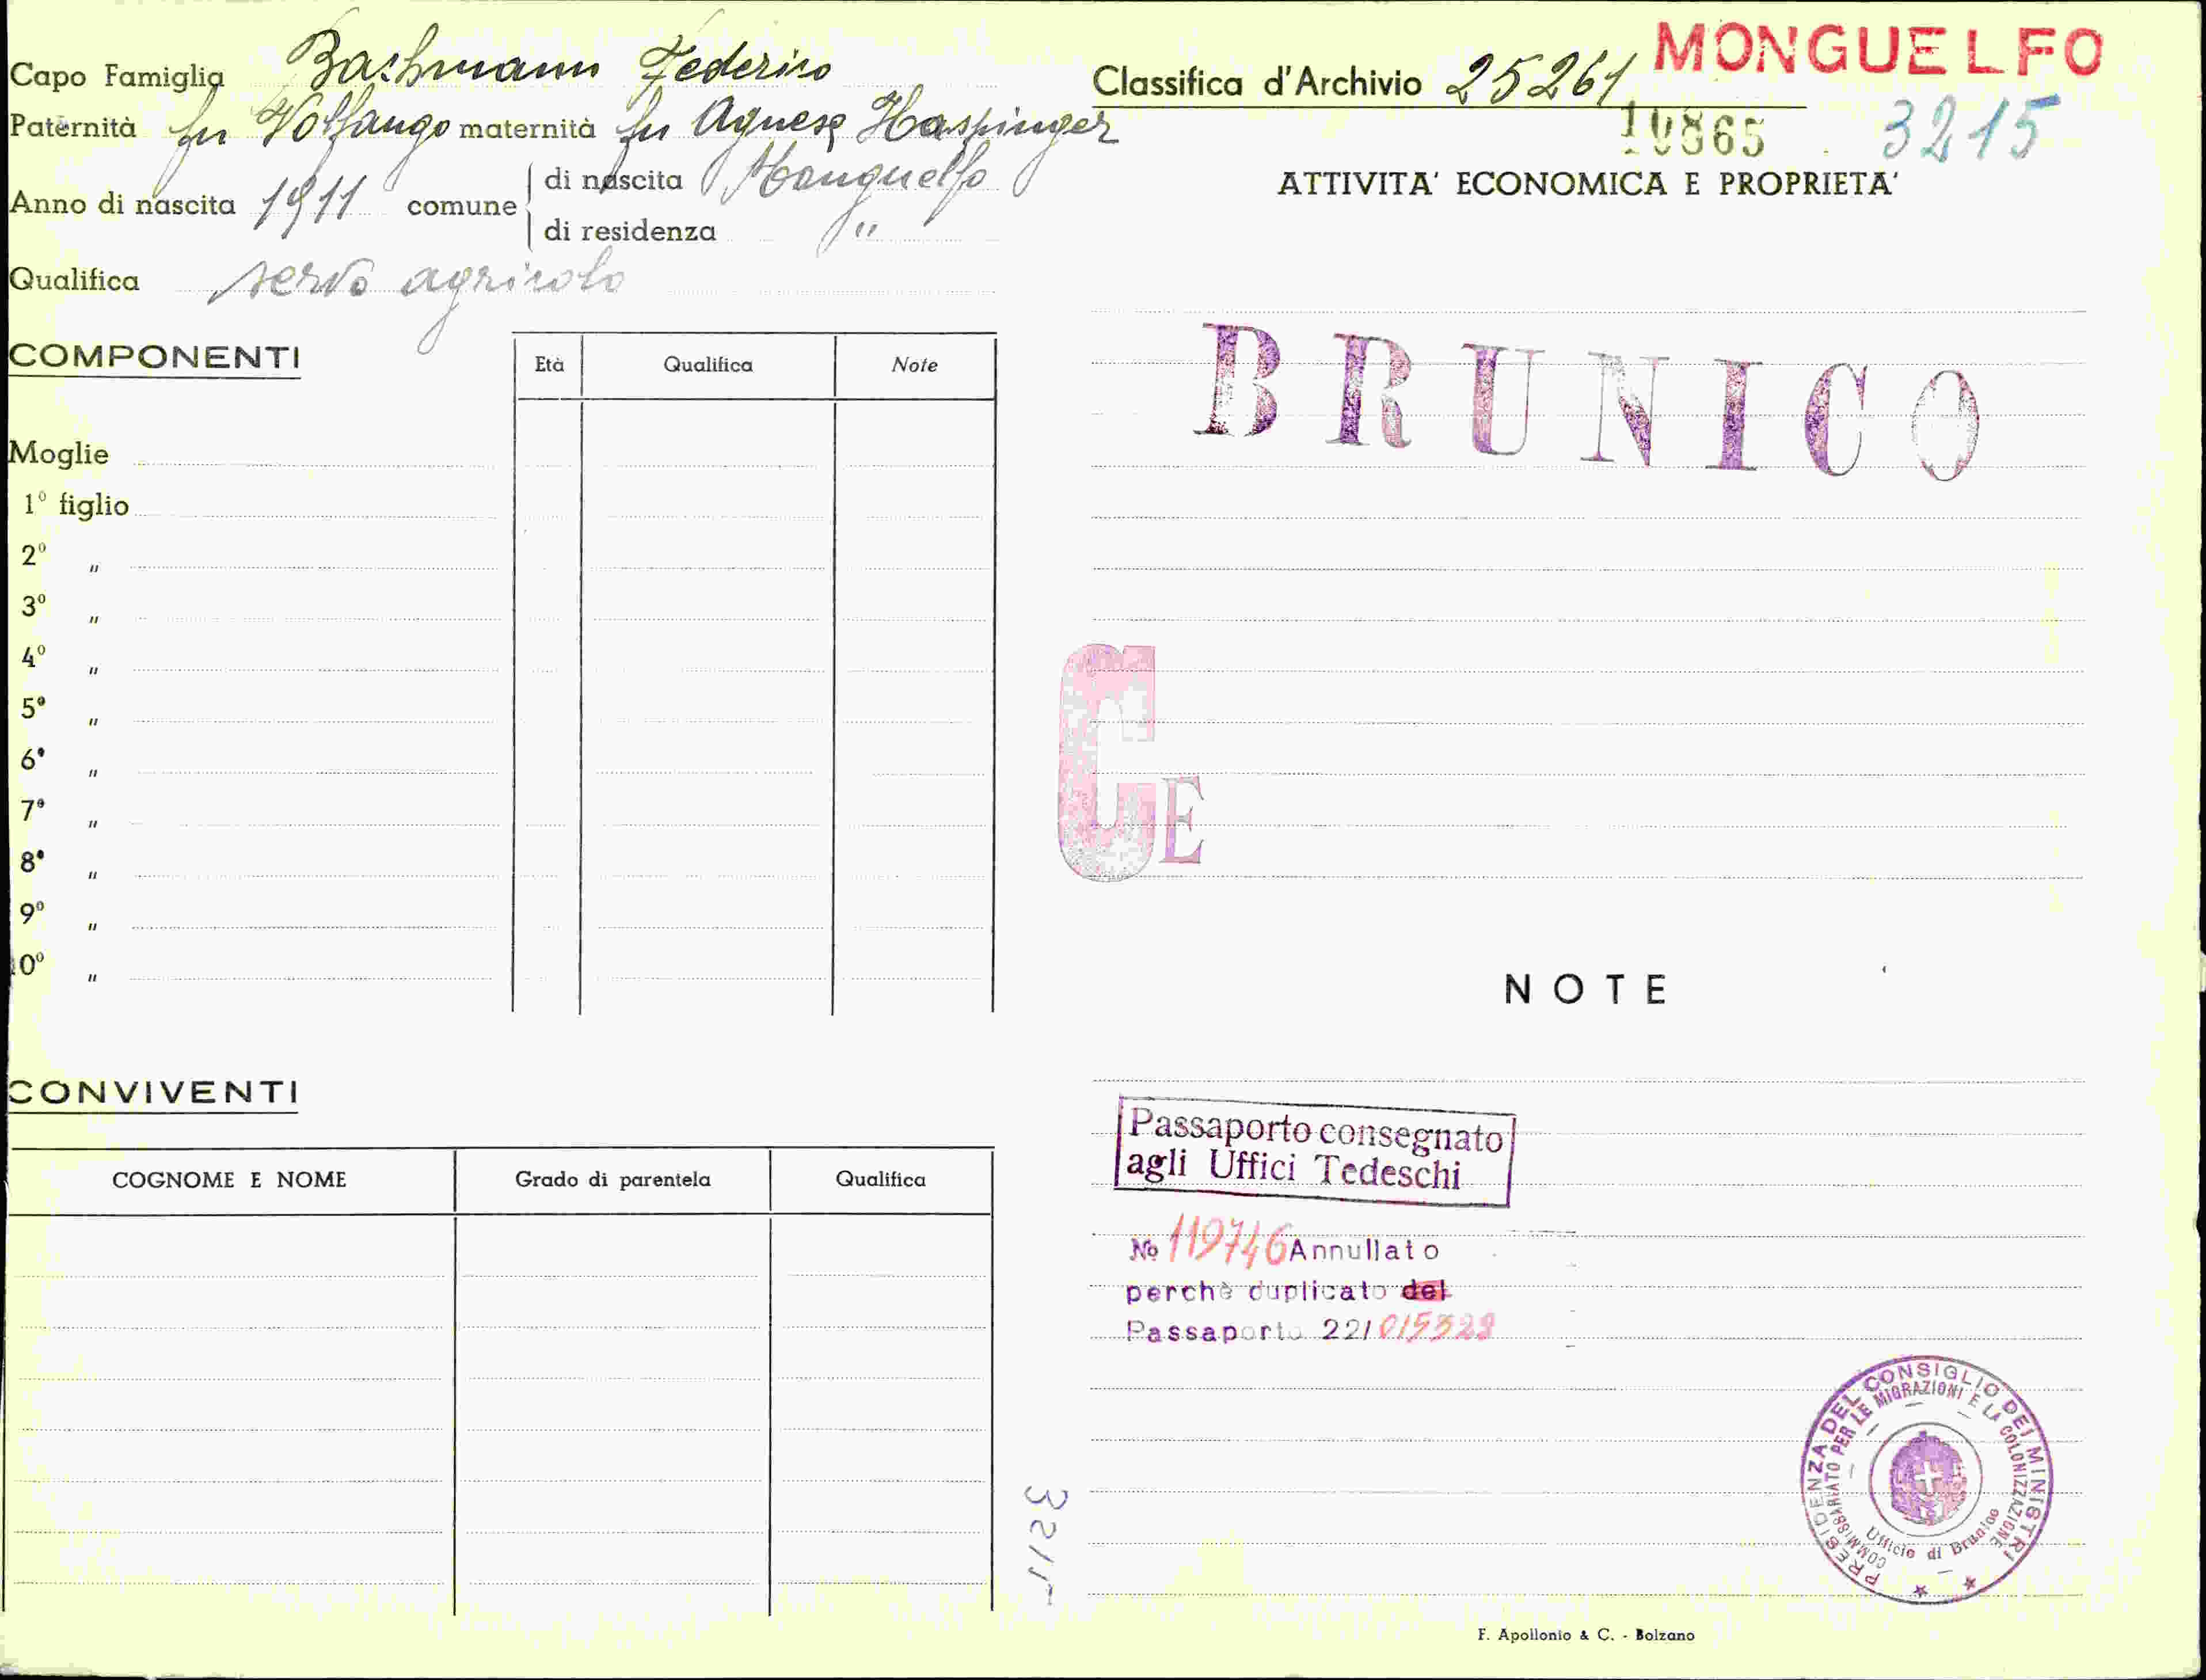 Capo Famiglia Bachmann Federico
Paternità fu Volfango maternità fu Agnese Haspinger
Anno di nascita 1911 comune di nascita Monguelfo
di residenza "
Qualifica servo agricolo
COMPONENTI
Età Qualifica Note
Moglie
1° figlio
2° "
3° "
4° "
5° "
6° "
7° "
8° "
9° "
10° "
CONVIVENTI
COGNOME E NOME Grado di parentela Qualifica
3215
Classifica d'Archivio 25261 MONGUELFO
10865 3215
ATTIVITA' ECONOMICA E PROPRIETA'
BRUNICO
C E
NOTE
Passaporto consegnato
agli Uffici Tedeschi
No 119746 Annullato
perchè duplicato del
Passaporto 221
PRESIDENZA DEL CONSIGLIO DEI MINISTRI
COMMISSARIATO PER LE MIGRAZIONI E LA COLONIZZAZIONE
Ufficio di Brunico
F. Apollonio & C. - Bolzano